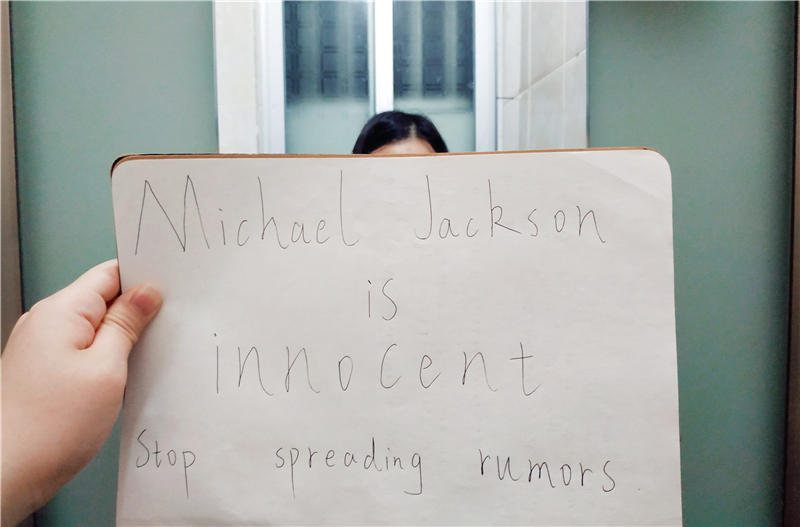 Michael Jackson
is
innocent
Stop spreading rumors.